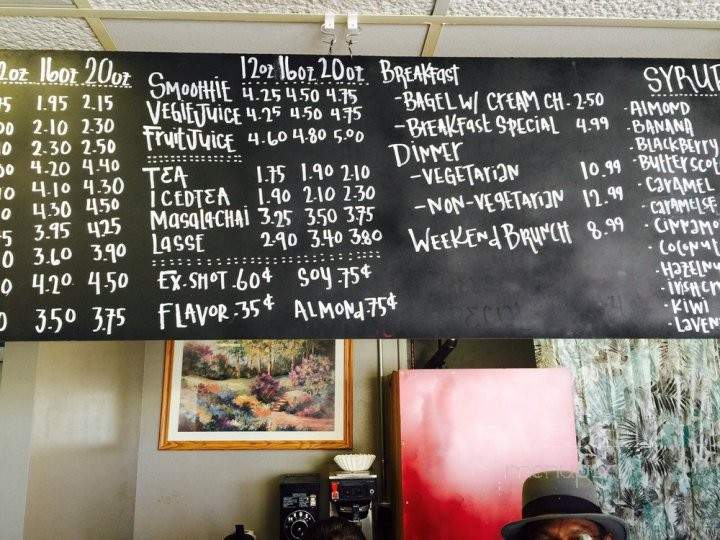 16oz 20oz
1.95 2.15
2.10 2.30
2.30 2.50
4.20 4.40
4.10 4.30
4.30 4.50
3.95 4.25
3.60 3.90
4.20 4.50
3.50 3.75
12oz 16oz 20oz
SMOOTHIE 4.25 4.50 4.75
VEGIE JUICE 4.25 4.50 4.75
FRUIT JUICE 4.60 4.80 5.00
TEA 1.75 1.90 2.10
ICED TEA 1.90 2.10 2.30
MASALA CHAI 3.25 3.50 3.75
LASSE 2.90 3.40 3.80
EX. SHOT .60¢ SOY .75¢
FLAVOR .35¢ ALMOND .75¢
BREAKFAST
-BAGEL W/ CREAM CH. 2.50
-BREAKFAST SPECIAL 4.99
DINNER
-VEGETARIAN 10.99
-NON-VEGETARIAN 12.99
WEEKEND BRUNCH 8.99
SYRUP
·ALMOND
·BANANA
·BLACKBERRY
·BUTTERSCOT
·CARAMEL
·CARAMELSE
·CINNAMO
·COCONUT
·HAZELNU
·IRISH CR
·KIWI
·LAVEN